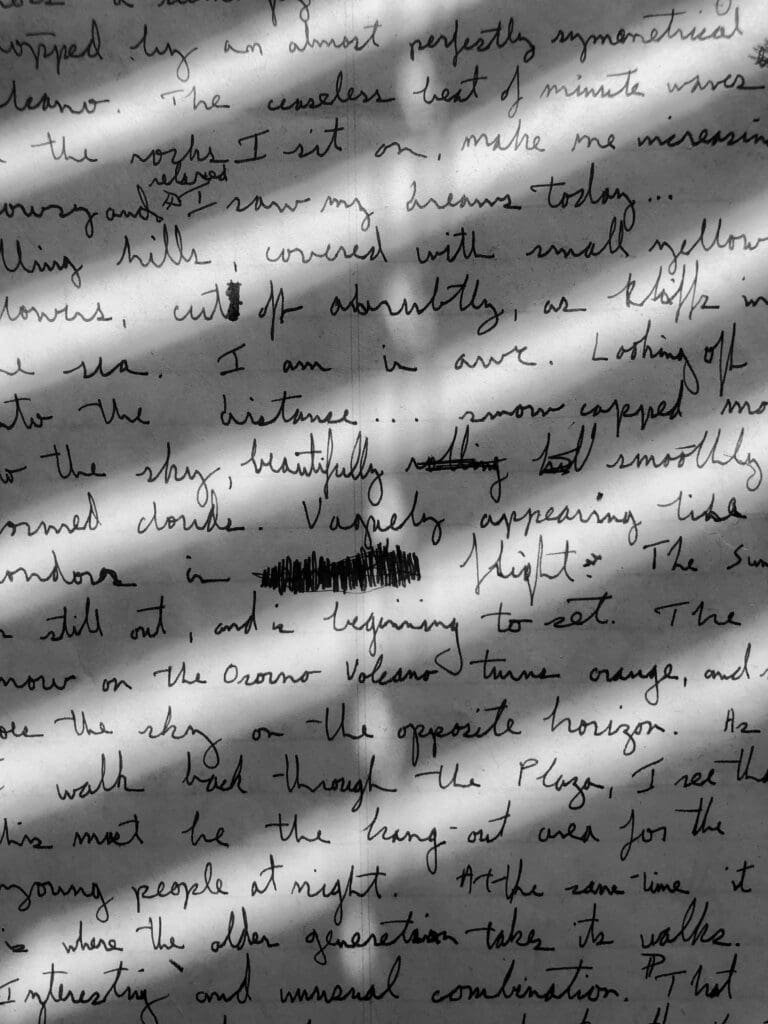 opped by an almost perfectly symmetrical
lcano. The ceaseless beat of minute waves
the rocks I sit on, make me increasin
relaxed
owsy and I saw my dreams today...
lling hills, covered with small yellow
lowers, cut off abrubtly, as kliffs in
he sea. I am in awe. Looking off
nto the distance... snow capped mo
to the sky, beautifully rolling smoothly
ormed clouds. Vaguely appearing like
ondors in flight. The Sun
is still out, and is beginning to set. The
now on the Osorno Volcano turns orange, and s
oes the sky on the opposite horizon. As
I walk back through the Plaza, I see tha
his must be the hang-out area for the
young people at night. At the same time it
is where the older generation takes its walks.
Interesting and unusual combination. That